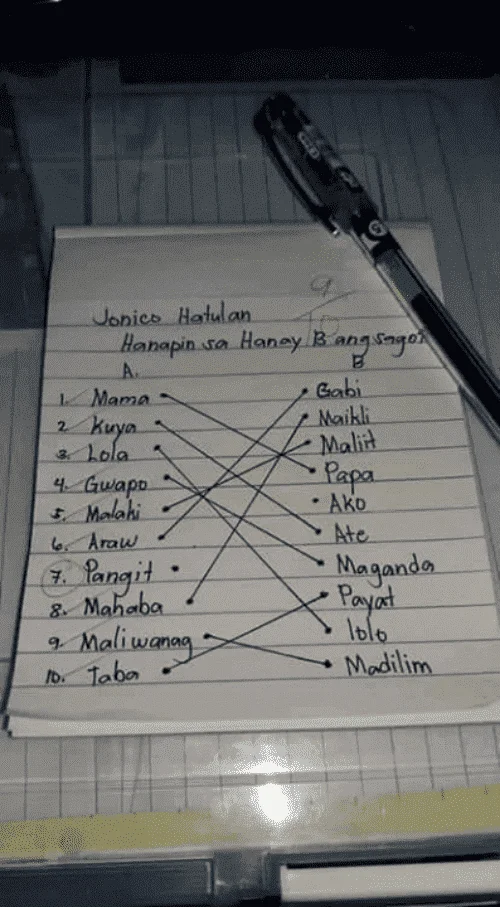 9
10
Jonico Hatulan
Hanapin sa Hanay B ang sagot
A. B
1. Mama Gabi
2 Kuya Maikli
3. Lola Maliit
4. Gwapo Papa
5. Malaki Ako
6. Araw Ate
7. Pangit Maganda
8. Mahaba Payat
9. Maliwanag lolo
10. Taba Madilim